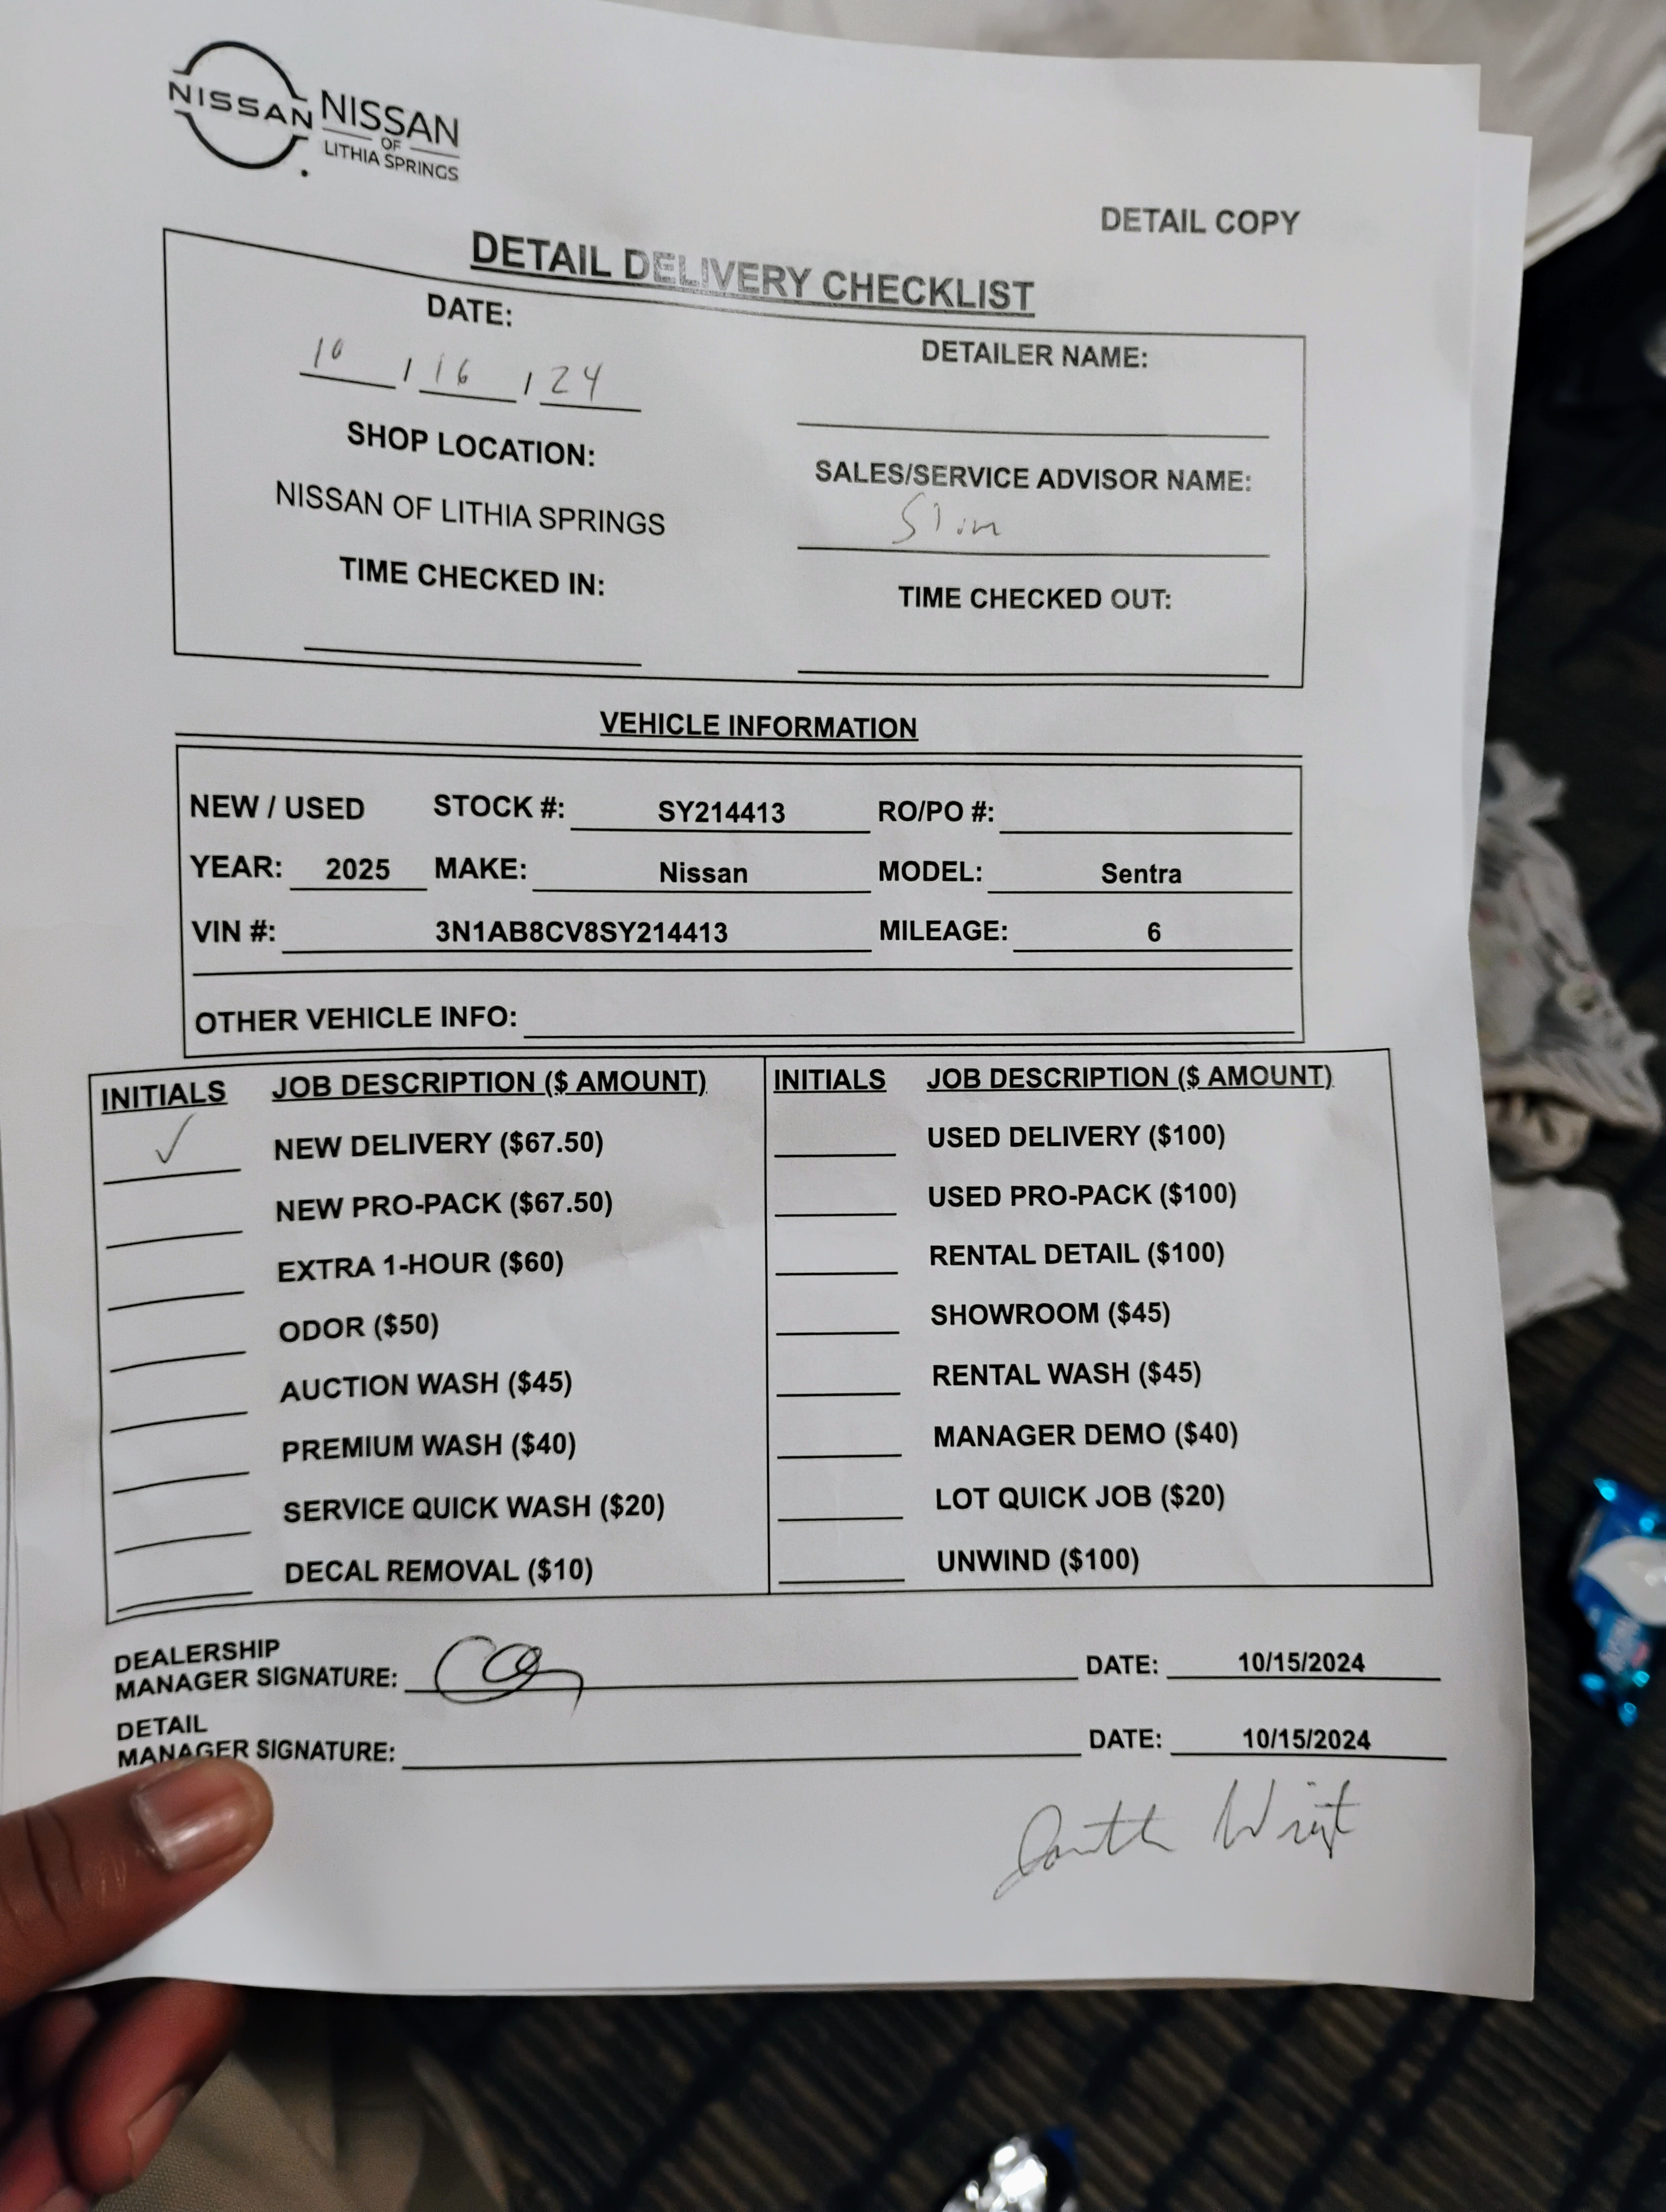 NISSAN
NISSAN
OF
LITHIA SPRINGS
DETAIL COPY
DETAIL DELIVERY CHECKLIST
DATE:
10 / 16 / 24
DETAILER NAME:
SHOP LOCATION:
NISSAN OF LITHIA SPRINGS
SALES/SERVICE ADVISOR NAME:
Slim
TIME CHECKED IN:
TIME CHECKED OUT:
VEHICLE INFORMATION
NEW / USED STOCK #: SY214413 RO/PO #:
YEAR: 2025 MAKE: Nissan MODEL: Sentra
VIN #: 3N1AB8CV8SY214413 MILEAGE: 6
OTHER VEHICLE INFO:
INITIALS JOB DESCRIPTION ($ AMOUNT) INITIALS JOB DESCRIPTION ($ AMOUNT)
✓ NEW DELIVERY ($67.50) USED DELIVERY ($100)
NEW PRO-PACK ($67.50) USED PRO-PACK ($100)
EXTRA 1-HOUR ($60) RENTAL DETAIL ($100)
ODOR ($50) SHOWROOM ($45)
AUCTION WASH ($45) RENTAL WASH ($45)
PREMIUM WASH ($40) MANAGER DEMO ($40)
SERVICE QUICK WASH ($20) LOT QUICK JOB ($20)
DECAL REMOVAL ($10) UNWIND ($100)
DEALERSHIP
MANAGER SIGNATURE: DATE: 10/15/2024
DETAIL
MANAGER SIGNATURE: DATE: 10/15/2024